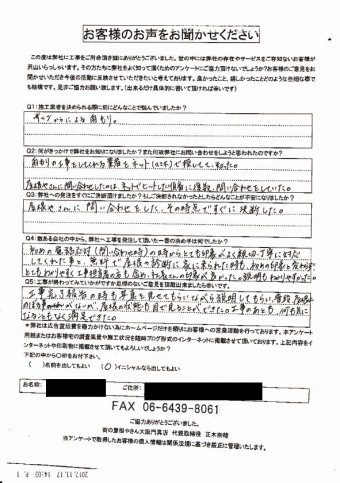 お客様のお声をお聞かせください
この度は弊社に工事をご用命頂き誠にありがとうございます。世の中には弊社の存在やサービスをご存知ないお客様が
沢山いらっしゃいます。その方たちに弊社をよく知って頂くためのアンケートにご協力頂けないでしょうか?お客様のご意見をお
聞かせいただき今後の活動に反映させていただきたいと考えております。良かったこと、嬉しかったことどのような些細な事で
も結構です。是非ご協力お願い致します。(出来るだけ具体的に書いて頂ければ幸いです)
Q1:施工業者を決められる際に前にどんなことで悩んでいましたか?
からによる雨もり。
Q2:何がきっかけで弊社をお知りになりましたか?また何故弊社にお問い合わせをしようと思われたのですか?
雨もりの工事をしてくれる業者をネットで探して、知った。
屋根やさんに問い合わせしたのは、ネットでヒットした順番に複数、問い合わせをしていた。
Q3:弊社への発注をすぐにご決断頂けましたか?もしご決断されなかったとしたらどんなことが不安になりましたか?
屋根やさんに問い合わせをした、その時点ですぐに決断した。
Q4:数ある会社の中から、弊社へ工事を発注して頂いた一番の決め手は何でしたか?
初めの電話応対(問い合わせの時)の時からとても印象がよく親切、丁寧に対応
してくれた事と、無料で屋根の診断に来られた時も、初めの印象と変わらず
とてもわかりやすく工事担当者の方も
Q5:工事が終わってみていかがですか忌憚のないご意見を頂戴出来ましたら幸いです。
工事完了報告の時も写真を見せてもらいながら説明してもらい、普段屋根に
*弊社は広告宣伝費を極力かけない為にホームページだけを頼りにお客様への営業活動を行っております。本アンケート
用紙またはお客様宅の調査風景や施工状況を随時ブログ形式のインターネットに掲載させて頂いております。上記内容をイ
ンターネットや印刷物に掲載させて頂いてもよろしいでしょうか?
下記の中から○印をお付下さい。
( )名前を出してもよい (○)イニシャルなら出してもよい
お名前:
ご住所:
FAX 06-6439-8061
ご協力ありがとうございました。
街の屋根やさん大阪門真店 代表取締役 正木奈穂
当アンケートで取得したお客様の個人情報は関係法規に基づき厳正に管理いたします。
2017.11.17 14:03